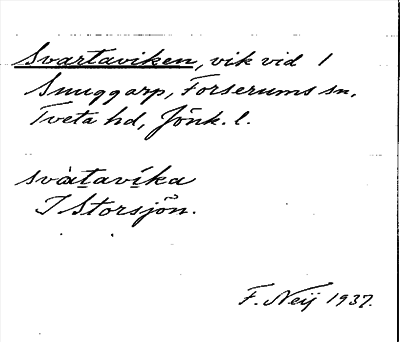 Svartaviken, vik vid 1
Snuggarp, Forserums sn,
Tveta hd, Jönk. l.
svàt̲aví̲ka
I Storsjön.
F. Neij 1937.